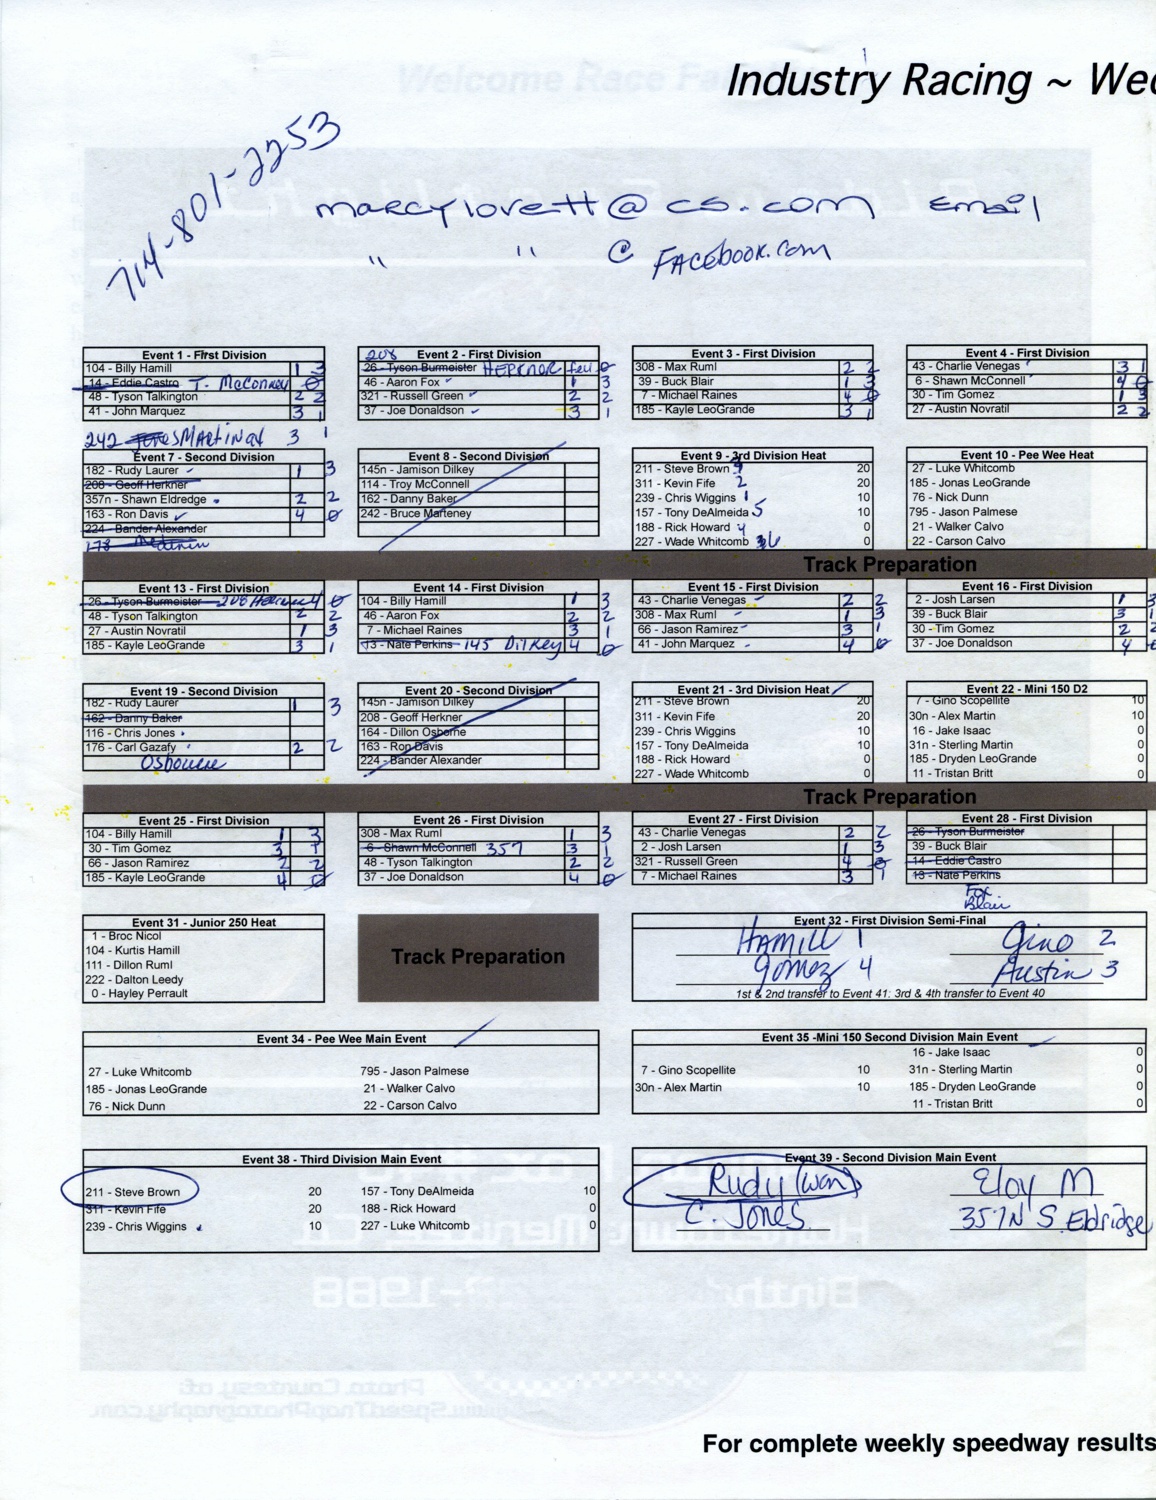 Industry Racing ~ Wed
714-801-2253
marcylovett@cs.com Email
" " @ Facebook.com
Event 1 - First Division
104 - Billy Hamill 1 3
14 - Eddie Castro T. McConney 0
48 - Tyson Talkington 2 2
41 - John Marquez 3 1
208 Event 2 - First Division
26 - Tyson Burmeister HERKNOR fell 0
46 - Aaron Fox 1 3
321 - Russell Green 2 2
37 - Joe Donaldson 3 1
Event 3 - First Division
308 - Max Ruml 2 2
39 - Buck Blair 1 3
7 - Michael Raines 4 0
185 - Kayle LeoGrande 3 1
Event 4 - First Division
43 - Charlie Venegas 3 1
6 - Shawn McConnell 4 0
30 - Tim Gomez 1 3
27 - Austin Novratil 2 2
242 Martinay 3 1
Event 7 - Second Division
182 - Rudy Laurer 1 3
208 - Geoff Herkner
357n - Shawn Eldredge 2 2
163 - Ron Davis 4 0
224 - Bander Alexander
178
Event 8 - Second Division
145n - Jamison Dilkey
114 - Troy McConnell
162 - Danny Baker
242 - Bruce Marteney
Event 9 - 3rd Division Heat
211 - Steve Brown 20
311 - Kevin Fife 2 20
239 - Chris Wiggins 1 10
157 - Tony DeAlmeida 5 10
188 - Rick Howard 4 0
227 - Wade Whitcomb 0
Event 10 - Pee Wee Heat
27 - Luke Whitcomb
185 - Jonas LeoGrande
76 - Nick Dunn
795 - Jason Palmese
21 - Walker Calvo
22 - Carson Calvo
Track Preparation
Event 13 - First Division
26 - Tyson Burmeister 208 4 0
48 - Tyson Talkington 2 2
27 - Austin Novratil 1 3
185 - Kayle LeoGrande 3 1
Event 14 - First Division
104 - Billy Hamill 1 3
46 - Aaron Fox 2 2
7 - Michael Raines 3 1
13 - Nate Perkins 145 Dilkey 4 0
Event 15 - First Division
43 - Charlie Venegas 2 2
308 - Max Ruml 1 3
66 - Jason Ramirez 3 1
41 - John Marquez 4 0
Event 16 - First Division
2 - Josh Larsen 1 3
39 - Buck Blair 3 1
30 - Tim Gomez 2 2
37 - Joe Donaldson 4
Event 19 - Second Division
182 - Rudy Laurer 1 3
162 - Danny Baker
116 - Chris Jones
176 - Carl Gazafy 2 2
Osbourne
Event 20 - Second Division
145n - Jamison Dilkey
208 - Geoff Herkner
164 - Dillon Osborne
163 - Ron Davis
224 - Bander Alexander
Event 21 - 3rd Division Heat
211 - Steve Brown 20
311 - Kevin Fife 20
239 - Chris Wiggins 10
157 - Tony DeAlmeida 10
188 - Rick Howard 0
227 - Wade Whitcomb 0
Event 22 - Mini 150 D2
7 - Gino Scopellite 10
30n - Alex Martin 10
16 - Jake Isaac 0
31n - Sterling Martin 0
185 - Dryden LeoGrande 0
11 - Tristan Britt 0
Track Preparation
Event 25 - First Division
104 - Billy Hamill 1 3
30 - Tim Gomez 3 1
66 - Jason Ramirez 2 2
185 - Kayle LeoGrande 4 0
Event 26 - First Division
308 - Max Ruml 1 3
6 - Shawn McConnell 357 3 1
48 - Tyson Talkington 2 2
37 - Joe Donaldson 4 0
Event 27 - First Division
43 - Charlie Venegas 2 2
2 - Josh Larsen 1 3
321 - Russell Green 4 0
7 - Michael Raines 3 1
Event 28 - First Division
26 - Tyson Burmeister
39 - Buck Blair
14 - Eddie Castro
13 - Nate Perkins
Fox
Blair
Event 31 - Junior 250 Heat
1 - Broc Nicol
104 - Kurtis Hamill
111 - Dillon Ruml
222 - Dalton Leedy
0 - Hayley Perrault
Track Preparation
Event 32 - First Division Semi-Final
HAMILL 1 Gino 2
Gomez 4 Austin 3
1st & 2nd transfer to Event 41: 3rd & 4th transfer to Event 40
Event 34 - Pee Wee Main Event
27 - Luke Whitcomb 795 - Jason Palmese
185 - Jonas LeoGrande 21 - Walker Calvo
76 - Nick Dunn 22 - Carson Calvo
Event 35 -Mini 150 Second Division Main Event
16 - Jake Isaac 0
7 - Gino Scopellite 10 31n - Sterling Martin 0
30n - Alex Martin 10 185 - Dryden LeoGrande 0
11 - Tristan Britt 0
Event 38 - Third Division Main Event
211 - Steve Brown 20 157 - Tony DeAlmeida 10
311 - Kevin Fife 20 188 - Rick Howard 0
239 - Chris Wiggins 10 227 - Luke Whitcomb 0
Event 39 - Second Division Main Event
Rudy (won) Eloy M
C. Jones 357N S. Eldridge
For complete weekly speedway results